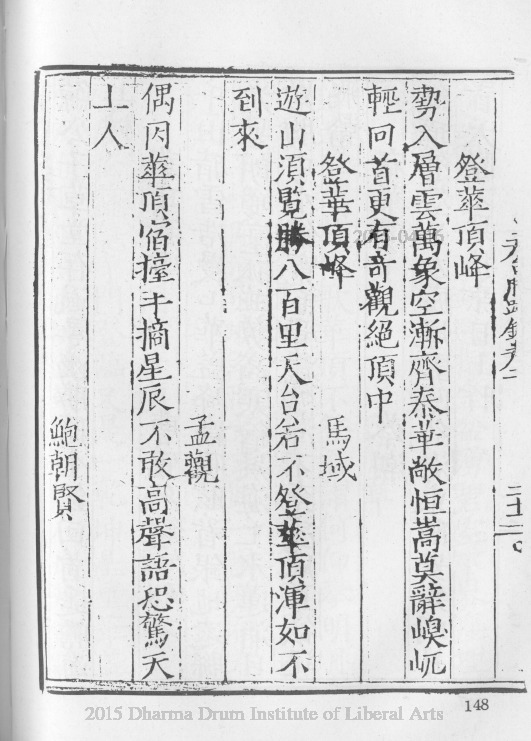 天台勝蹟錄卷二
登華頂峰
勢入層雲萬象空漸齊泰華敵恒嵩莫辭嵲屼
輕回首更有奇觀絕頂中
登華頂峰 馬域
遊山須覽勝八百里天台若不登華頂渾如不
到來
孟觀
偶因華頂宿擡手摘星辰不敢高聲語恐驚天
上人
鮑朝賢
148
2015 Dharma Drum Institute of Liberal Arts